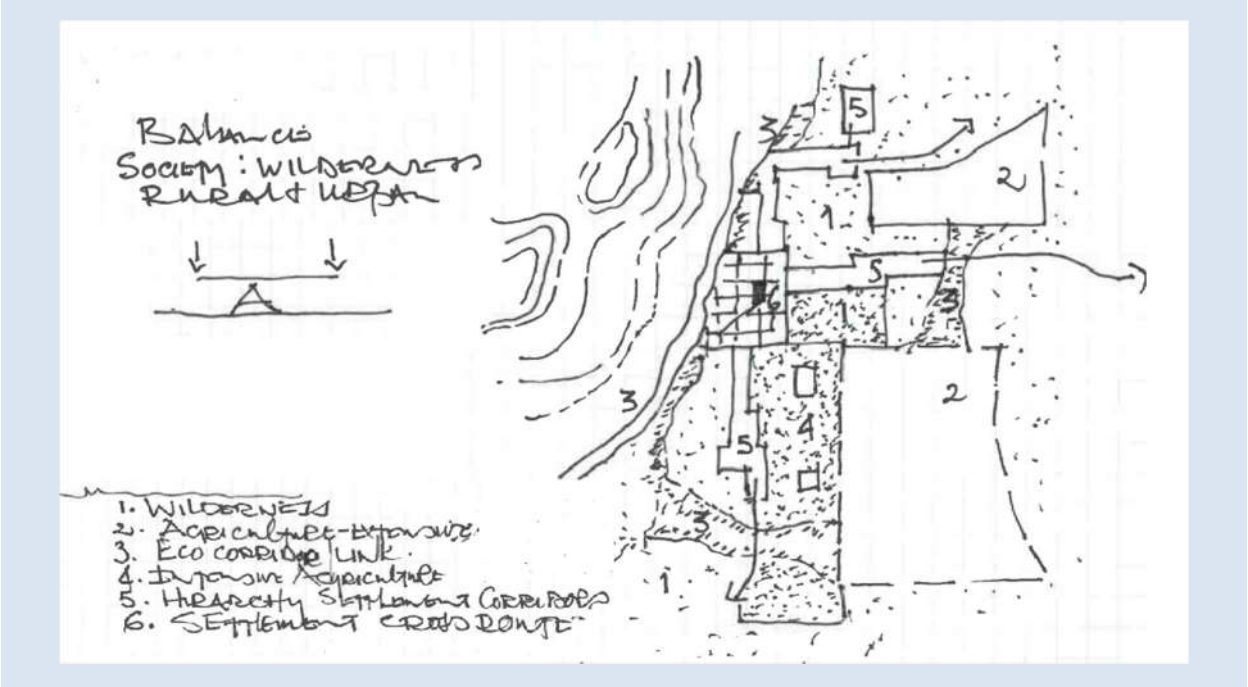 BALANCE
SOCIETY: WILDERNESS
RURAL & URBAN
1. WILDERNESS
2. AGRICULTURE-EXTENSIVE
3. ECO CORRIDOR/LINK.
4. INTENSIVE AGRICULTURE
5. HIRARCHY SETTLEMENT CORRIDORS
6. SETTLEMENT CROSS
5
3
2
1
5
6
1
3
3
2
4
5
3
1